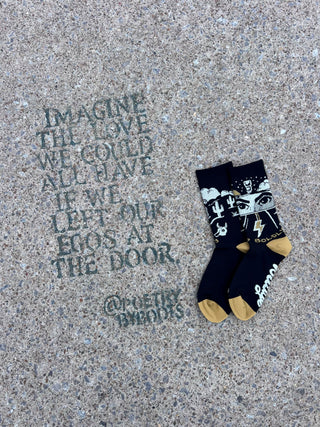 IMAGINE
THE LOVE
WE COULD
ALL HAVE
IF WE
LEFT OUR
EGOS AT
THE DOOR.
@POETRY
BYBOOTS.